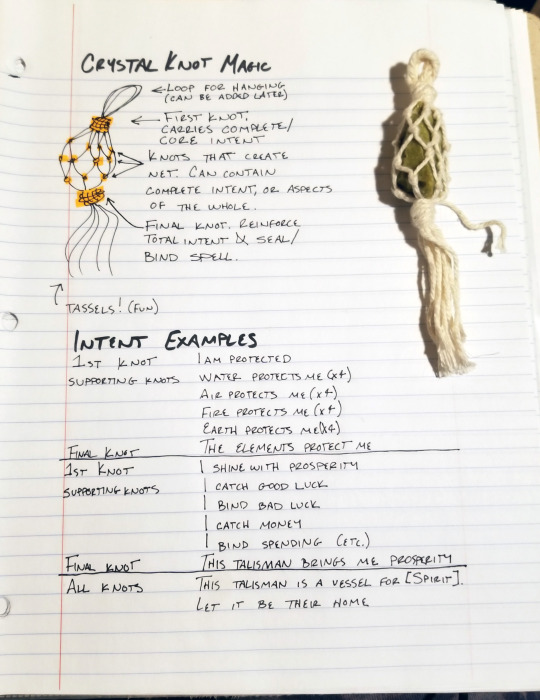 Crystal Knot Magic
←Loop for hanging
(can be added later)
First knot.
carries complete/
core intent
Knots that create
net. Can contain
complete intent, or aspects
of the whole.
Final knot. Reinforce
total intent & seal/
bind spell.
Tassels! (fun)
Intent Examples
1st knot I am protected
supporting knots Water protects me (x4)
Air protects me (x4)
Fire protects me (x4)
Earth protects me (x4)
Final knot The elements protect me
1st knot I shine with prosperity
supporting knots I catch good luck
I bind bad luck
I catch money
I bind spending (etc.)
Final knot This talisman brings me prosperity
All knots This talisman is a vessel for [Spirit].
Let it be their home